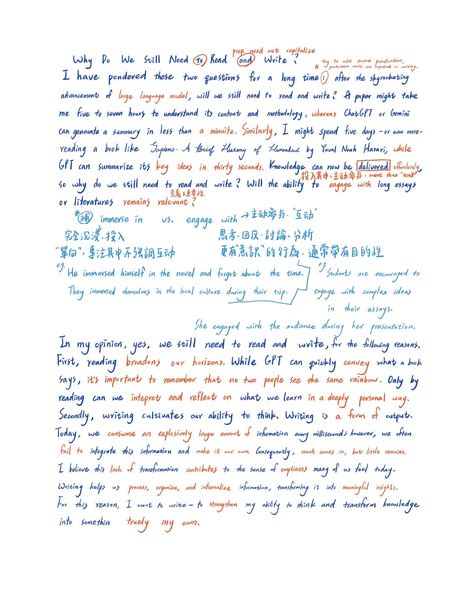 prep need not capitalize
Why Do We Still Need to Read and Write?
try to use more punctuation,
I have pondered these two questions for a long time: after the skyrocketing
advancement of large language model, will we still need to read and write? A paper might take
me five to seven hours to understand its content and methodology, whereas ChatGPT or Gemini
can generate a summary in less than a minute. Similarly, I might spend five days - or even more -
reading a book like Sapiens: A Brief History of Humankind by Yuval Noah Harari, while
GPT can summarize its key ideas in thirty seconds. Knowledge can now be delivered effortlessly,
投入其中、主動參與, more than "read"
so why do we still need to read and write? Will the ability to engage with long essays
or literatures remains relevant?
immerse in vs. engage with → 主動參與、"互動"
完全沉浸、投入 思考、回應、討論、分析
"單向"、專注其中不強調互動 更有"意識"的行為、通常帶有目的性
eg. He immersed himself in the novel and forget about the time. Students are encouraged to
They immersed themselves in the local culture during their trip. engage with complex ideas
in their essays.
She engaged with the audience during her presentation.
In my opinion, yes, we still need to read and write, for the following reasons.
First, reading broadens our horizons. While GPT can quickly convey what a book
says, it's important to remember that no two people see the same rainbow. Only by
reading can we intepret and reflect on what we learn in a deeply personal way.
Secondly, writing cultivates our ability to think. Writing is a form of output.
Today, we consume an explosively large amount of information every millisecond; however, we often
fail to integrate this information and make it our own. Consequently, much comes in, but little remains.
I believe this lack of transformation contributes to the sense of emptiness many of us feel today.
Writing helps us process, organize, and internalize information, transforming it into meaningful insights.
For this reason, I want to write - to strengthen my ability to think and transform knowledge
into somethin truely my own.